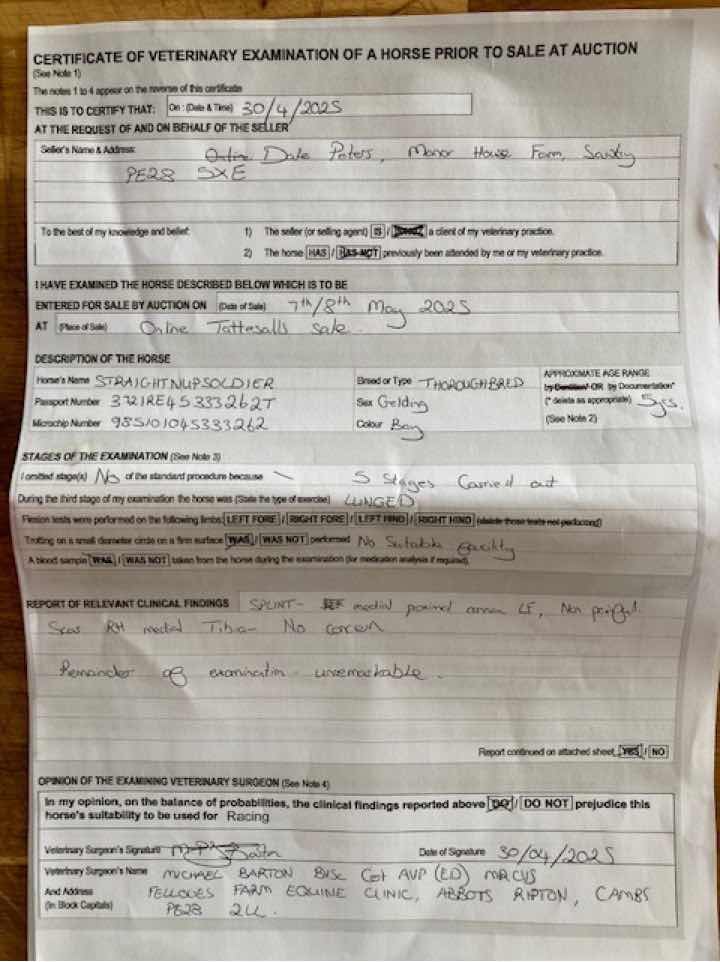 CERTIFICATE OF VETERINARY EXAMINATION OF A HORSE PRIOR TO SALE AT AUCTION
(See Note 1)
The notes 1 to 4 appear on the reverse of this certificate
THIS IS TO CERTIFY THAT: On : (Date & Time) 30/4/2025
AT THE REQUEST OF AND ON BEHALF OF THE SELLER
Seller's Name & Address: Dale Peters, Manor House Farm, Sawtry
PE28 5XE
To the best of my knowledge and belief: 1) The seller (or selling agent) IS / IS NOT a client of my veterinary practice.
2) The horse HAS / HAS NOT previously been attended by me or my veterinary practice.
I HAVE EXAMINED THE HORSE DESCRIBED BELOW WHICH IS TO BE
ENTERED FOR SALE BY AUCTION ON (Date of Sale) 7th/8th May 2025
AT (Place of Sale) Online Tattesalls Sale.
DESCRIPTION OF THE HORSE
Horse's Name STRAIGHTNUPSOLDIER Breed or Type THOROUGHBRED APPROXIMATE AGE RANGE
Passport Number 372IRE45333262T Sex Gelding by Dentition* OR by Documentation* (* delete as appropriate) 5yrs.
Microchip Number 985101045333262 Colour Bay (See Note 2)
STAGES OF THE EXAMINATION (See Note 3)
I omitted stage(s) No of the standard procedure because 5 Stages Carried out
During the third stage of my examination the horse was (State the type of exercise) LUNGED
Flexion tests were performed on the following limbs: LEFT FORE / RIGHT FORE / LEFT HIND / RIGHT HIND (delete those tests not performed)
Trotting on a small diameter circle on a firm surface WAS / WAS NOT performed No Suitable facility
A blood sample WAS / WAS NOT taken from the horse during the examination (for medication analysis if required).
REPORT OF RELEVANT CLINICAL FINDINGS SPLINT- medial proximal LF, Non painful.
Scar RH medial Tibia- No concern
Remainder of examination unremarkable.
Report continued on attached sheet YES / NO
OPINION OF THE EXAMINING VETERINARY SURGEON (See Note 4)
In my opinion, on the balance of probabilities, the clinical findings reported above DO / DO NOT prejudice this
horse's suitability to be used for Racing
Veterinary Surgeon's Signature Date of Signature 30/04/2025
Veterinary Surgeon's Name MICHAEL BARTON BVSc Cert AVP (ED) MRCVS
And Address FELLOWES FARM EQUINE CLINIC, ABBOTS RIPTON, CAMBS
(In Block Capitals) PE28 2LL.